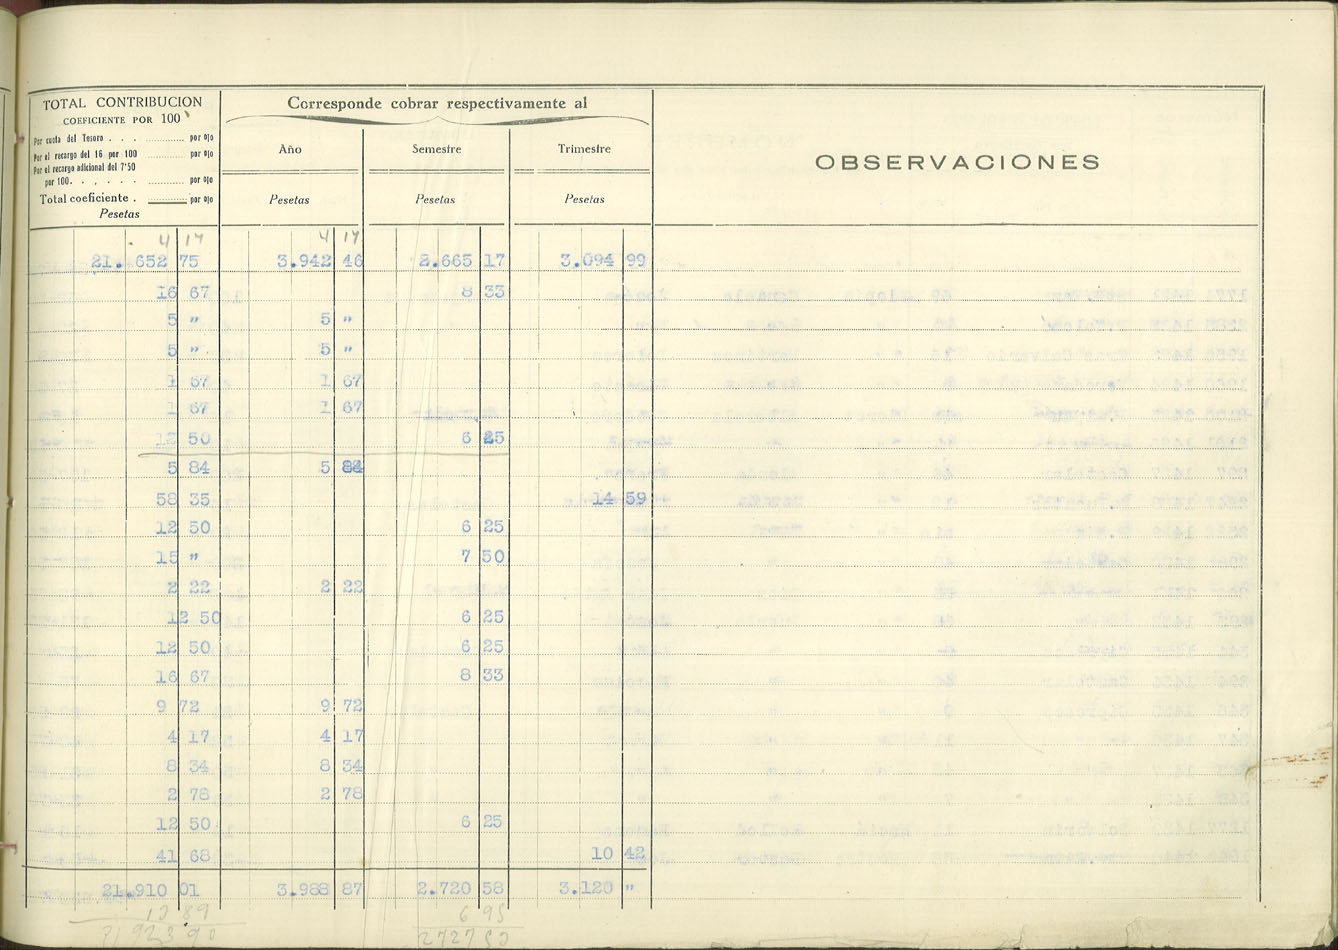 TOTAL CONTRIBUCION
COEFICIENTE POR 100
Por cuota del Tesoro . . . ............ por 0|0
Por el recargo del 16 por 100 ............ por 0|0
Por el recargo adicional del 7'50
por 100. . , . . . ............ por 0|0
Total coeficiente . ............ por 0|0
Pesetas
Corresponde cobrar respectivamente al
Año Semestre Trimestre
Pesetas Pesetas Pesetas
OBSERVACIONES
4 17 4 17
21.652 75 3.942 46 2.665 17 3.094 99
16 67 8 33
5 " 5 "
5 " 5 "
1 67 1 67
1 67 1 67
12 50 6 25
5 84 5 84
58 35 14 59
12 50 6 25
15 " 7 50
2 22 2 22
12 50 6 25
12 50 6 25
16 67 8 33
9 72 9 72
4 17 4 17
8 34 8 34
2 78 2 78
12 50 6 25
41 68 10 42
21.910 01 3.988 87 2.720 58 3.120 "
13 89 6 95